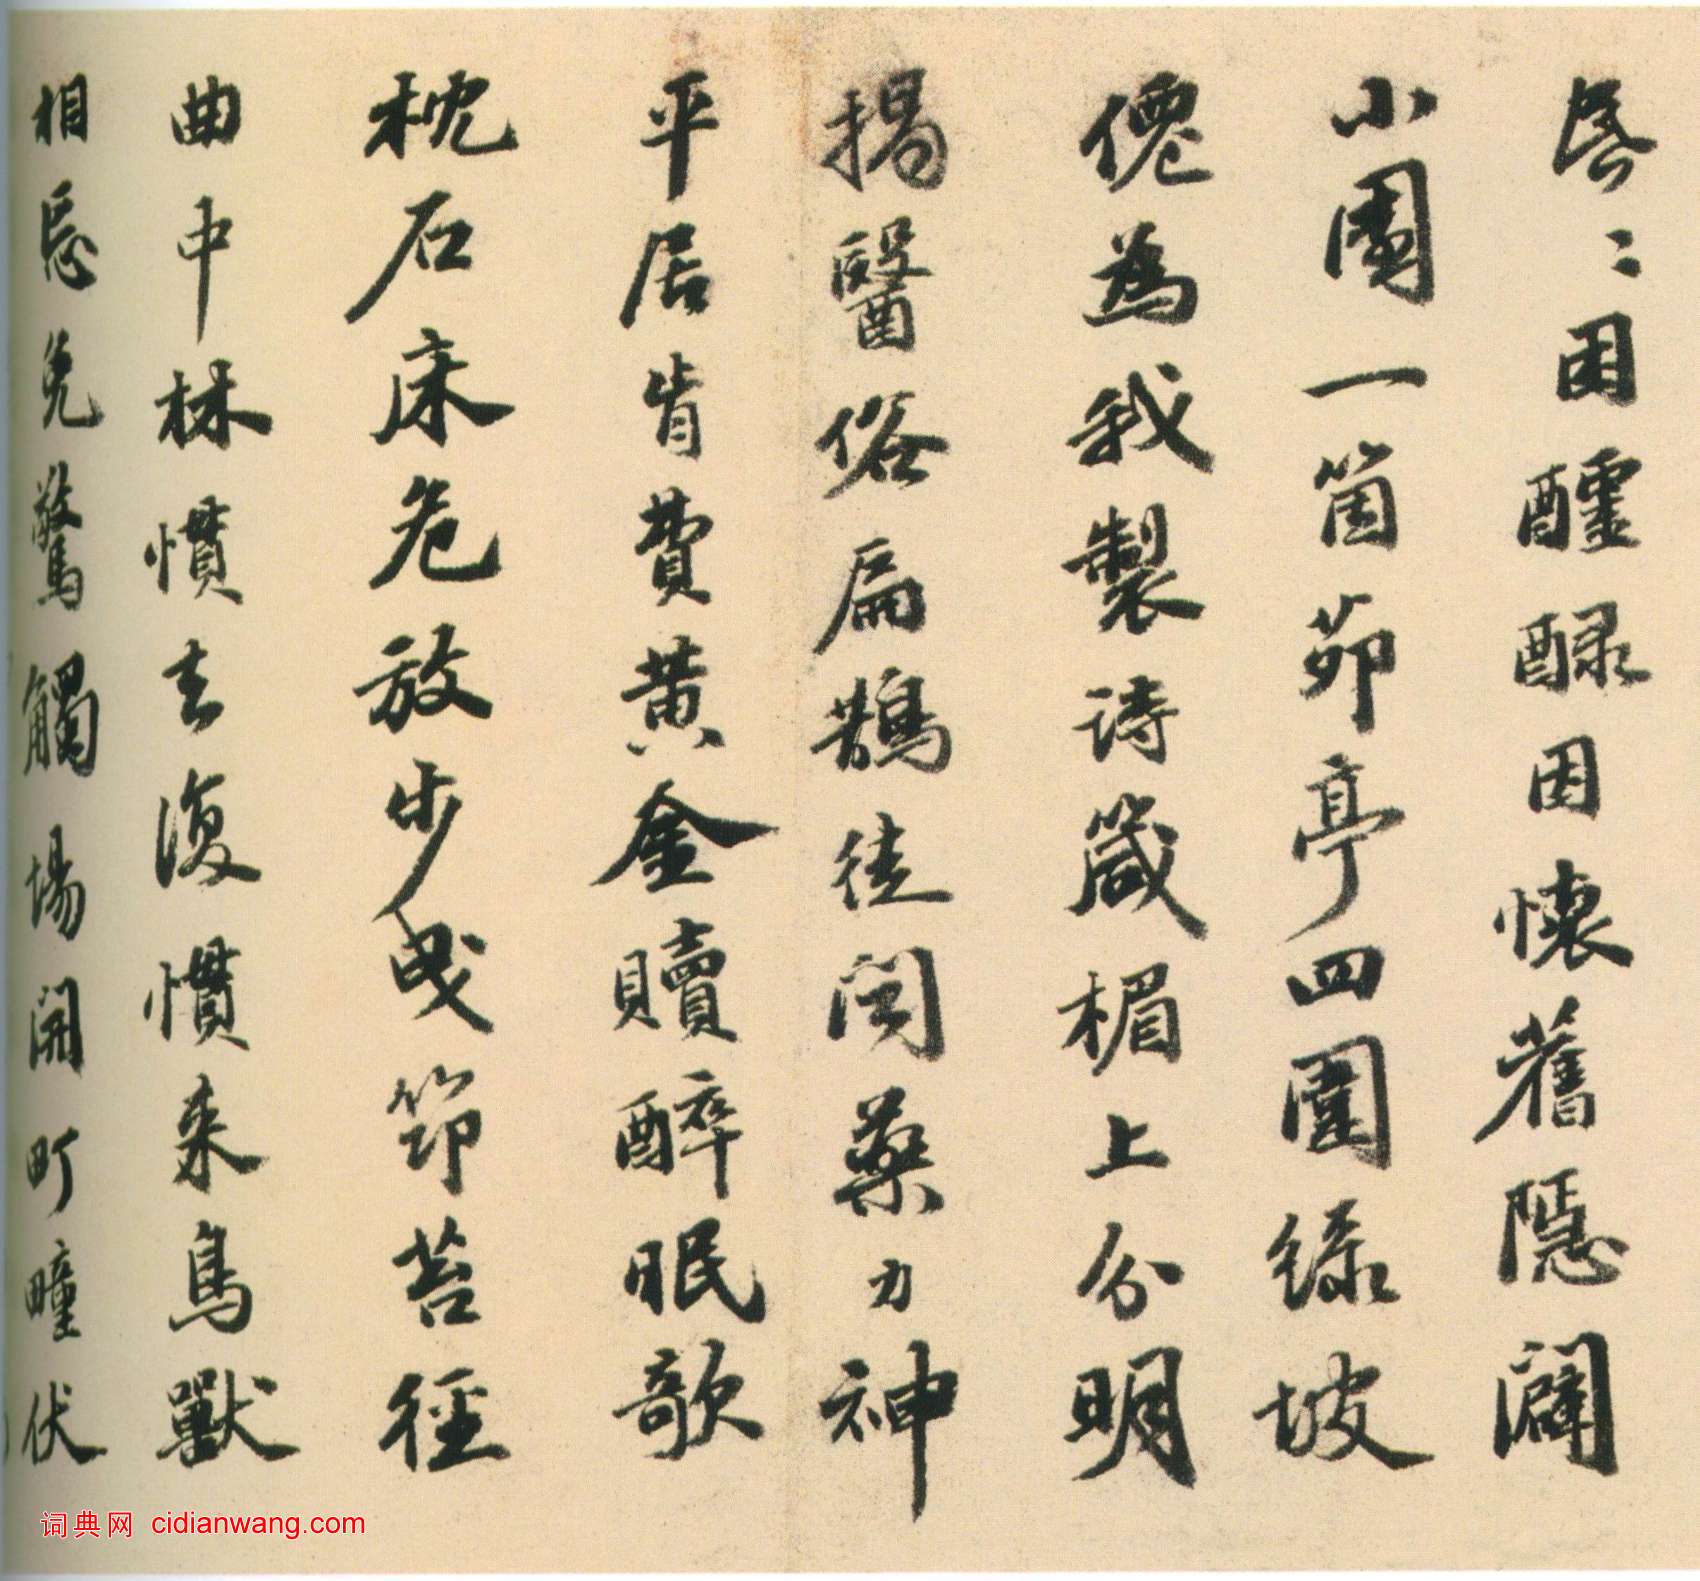 昏〻困醺醁因懷舊隱闢
小園一箇茆亭四圍綠坡
僊為我製詩箴楣上分明
揭醫俗扁鵲徒聞藥力神
平居肯費黃金贖醉眠歌
枕石床危放步曳筇苔徑
曲中林慣去復慣來鳥獸
相忘免驚觸場開町疃伏
词典网 cidianwang.com